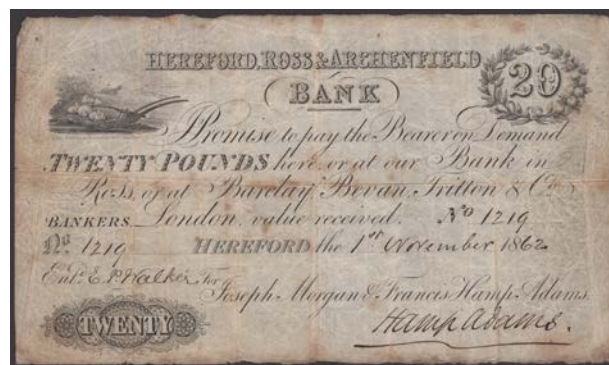 HEREFORD, ROSS & ARCHENFIELD
BANK
20
I Promise to pay the Bearer on Demand
TWENTY POUNDS here, or at our Bank in
Ross, or at Barclay Bevan, Tritton & Co
BANKERS London, value received. No 1219
No 1219 HEREFORD the 1st November 1862
Entd. E. P. Walker For
Joseph Morgan & Francis Hamp Adams.
TWENTY
Hamp Adams.